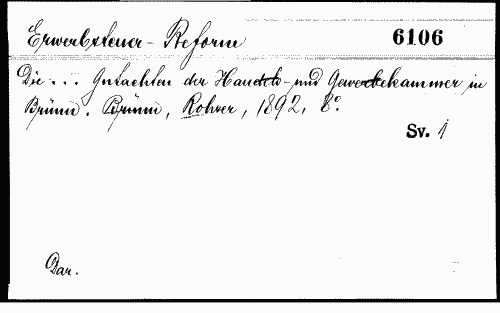 Erwerbsteuer-Reform 6106
Die ... Gutachten der Handels- und Gewerbekammer in
Brünn. Brünn, Rohrer, 1892. 8°.
Sv. 1
Dar.